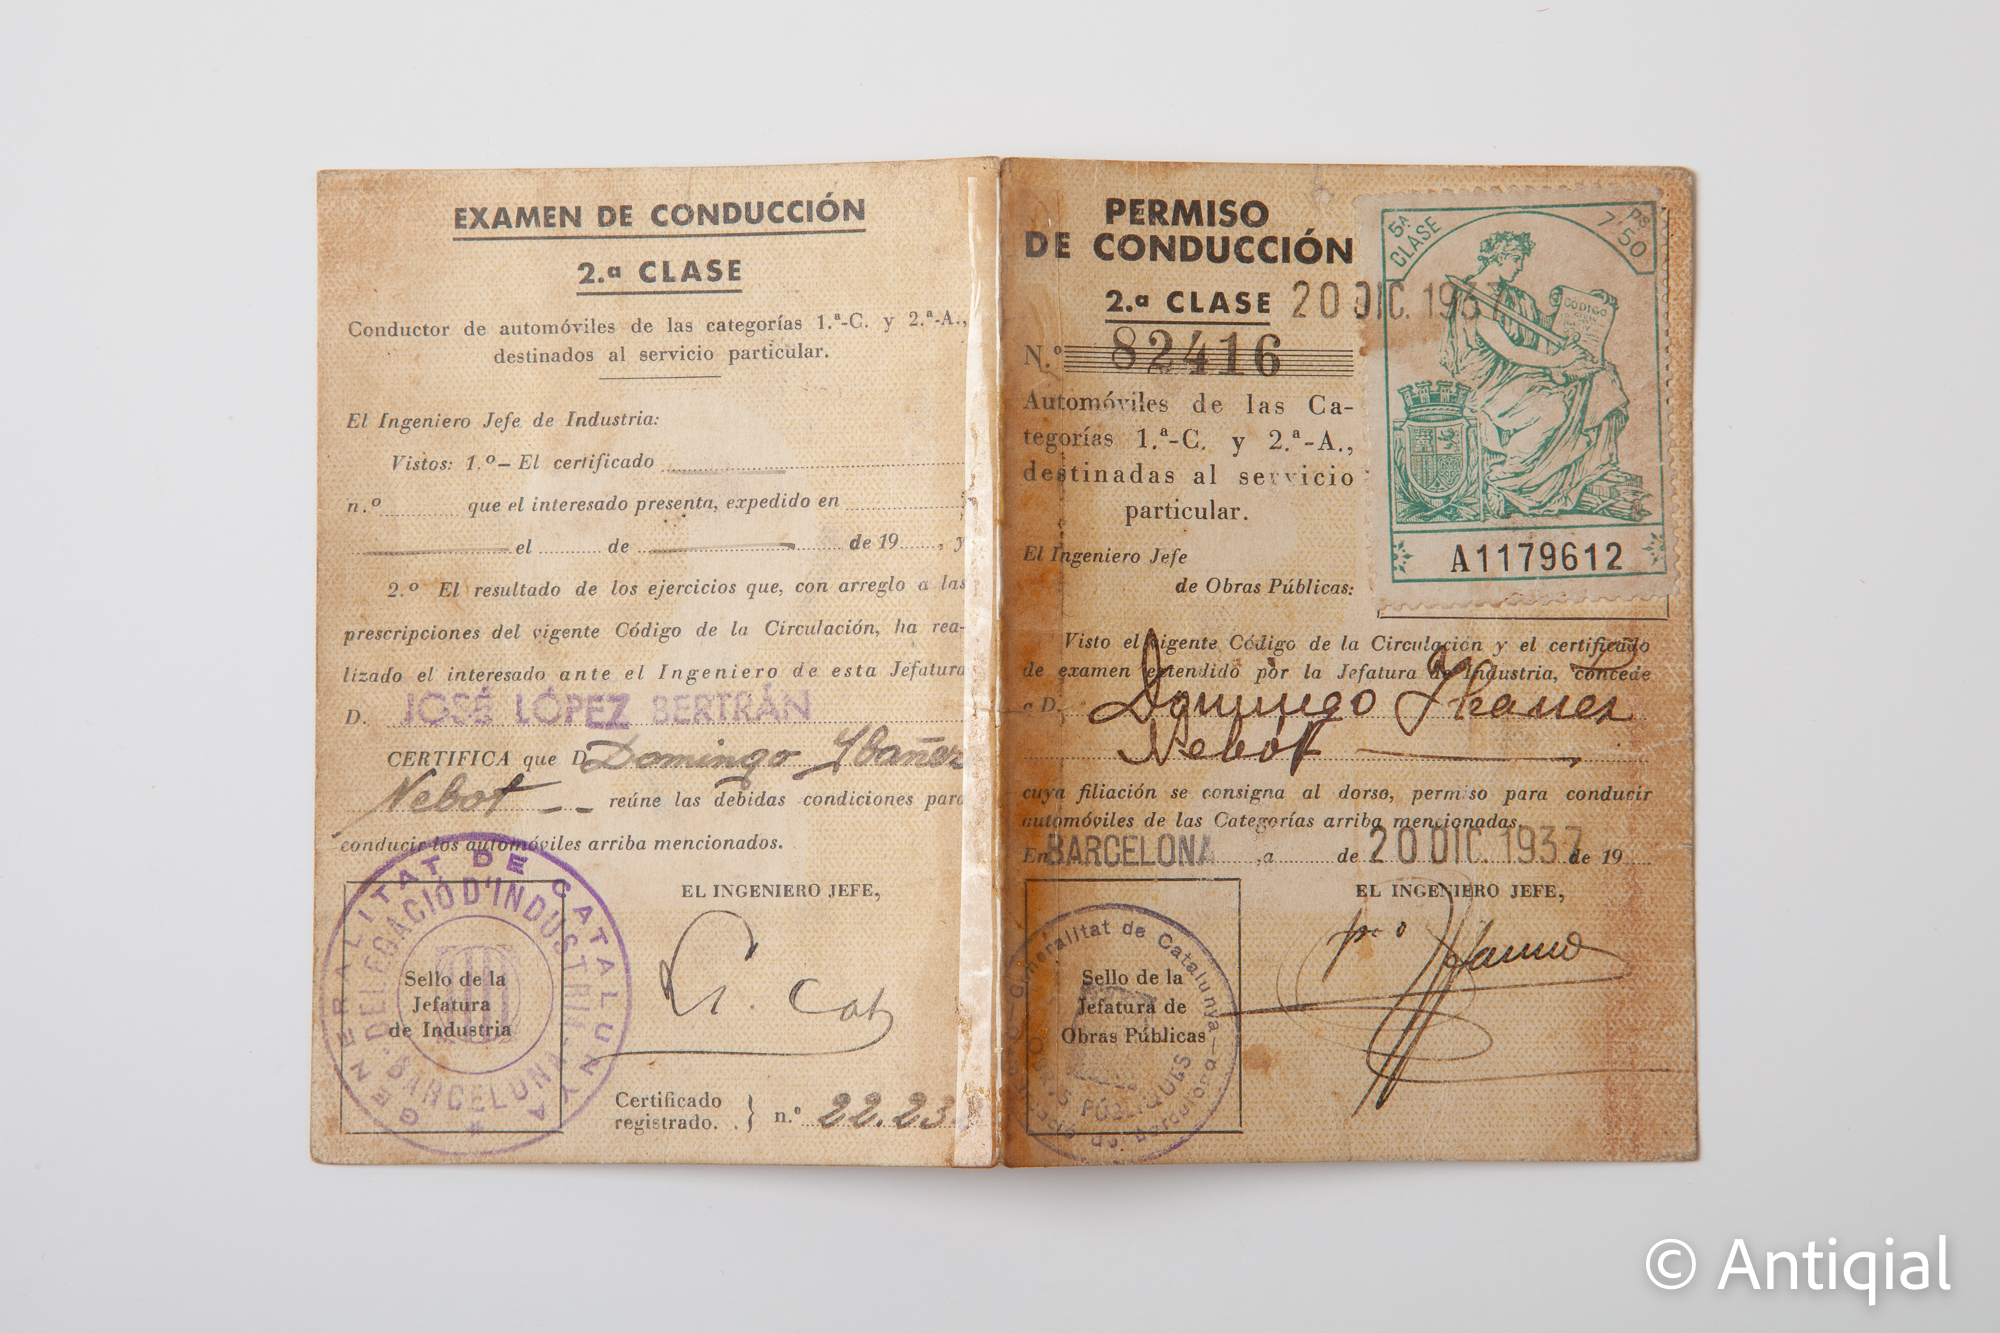 EXAMEN DE CONDUCCIÓN
2.ª CLASE
Conductor de automóviles de las categorías 1.ª-C. y 2.ª-A.,
destinados al servicio particular.
El Ingeniero Jefe de Industria:
Vistos: 1.º – El certificado
n.º que el interesado presenta, expedido en
el de de 19 , y
2.º El resultado de los ejercicios que, con arreglo a las
prescripciones del vigente Código de la Circulación, ha rea-
lizado el interesado ante el Ingeniero de esta Jefatura
D. JOSÉ LÓPEZ BERTRÁN
CERTIFICA que D Domingo Ibañez
Nebot reúne las debidas condiciones para
conducir los automóviles arriba mencionados.
EL INGENIERO JEFE,
GENERALITAT DE CATALUNYA
DELEGACIÓ D'INDUSTRIA
BARCELONA
Sello de la
Jefatura
de Industria
Certificado
registrado. } n.º 22.23
PERMISO
DE CONDUCCIÓN
2.ª CLASE 20 DIC. 1937
N.º 82416
Automóviles de las Ca-
tegorías 1.ª-C. y 2.ª-A.,
destinadas al servicio
particular.
El Ingeniero Jefe
de Obras Públicas:
5ª CLASE
Ps 7'50
CODIGO
A1179612
Visto el vigente Código de la Circulación y el certificado
de examen extendido por la Jefatura de Industria, concede
a D. Domingo Ibañez
Nebot
cuya filiación se consigna al dorso, permiso para conducir
automóviles de las Categorías arriba mencionadas.
En BARCELONA , a de 20 DIC. 1937 de 19
EL INGENIERO JEFE,
Generalitat de Catalunya
OBRES PÚBLIQUES
Barcelona
Sello de la
Jefatura de
Obras Públicas
© Antiqial